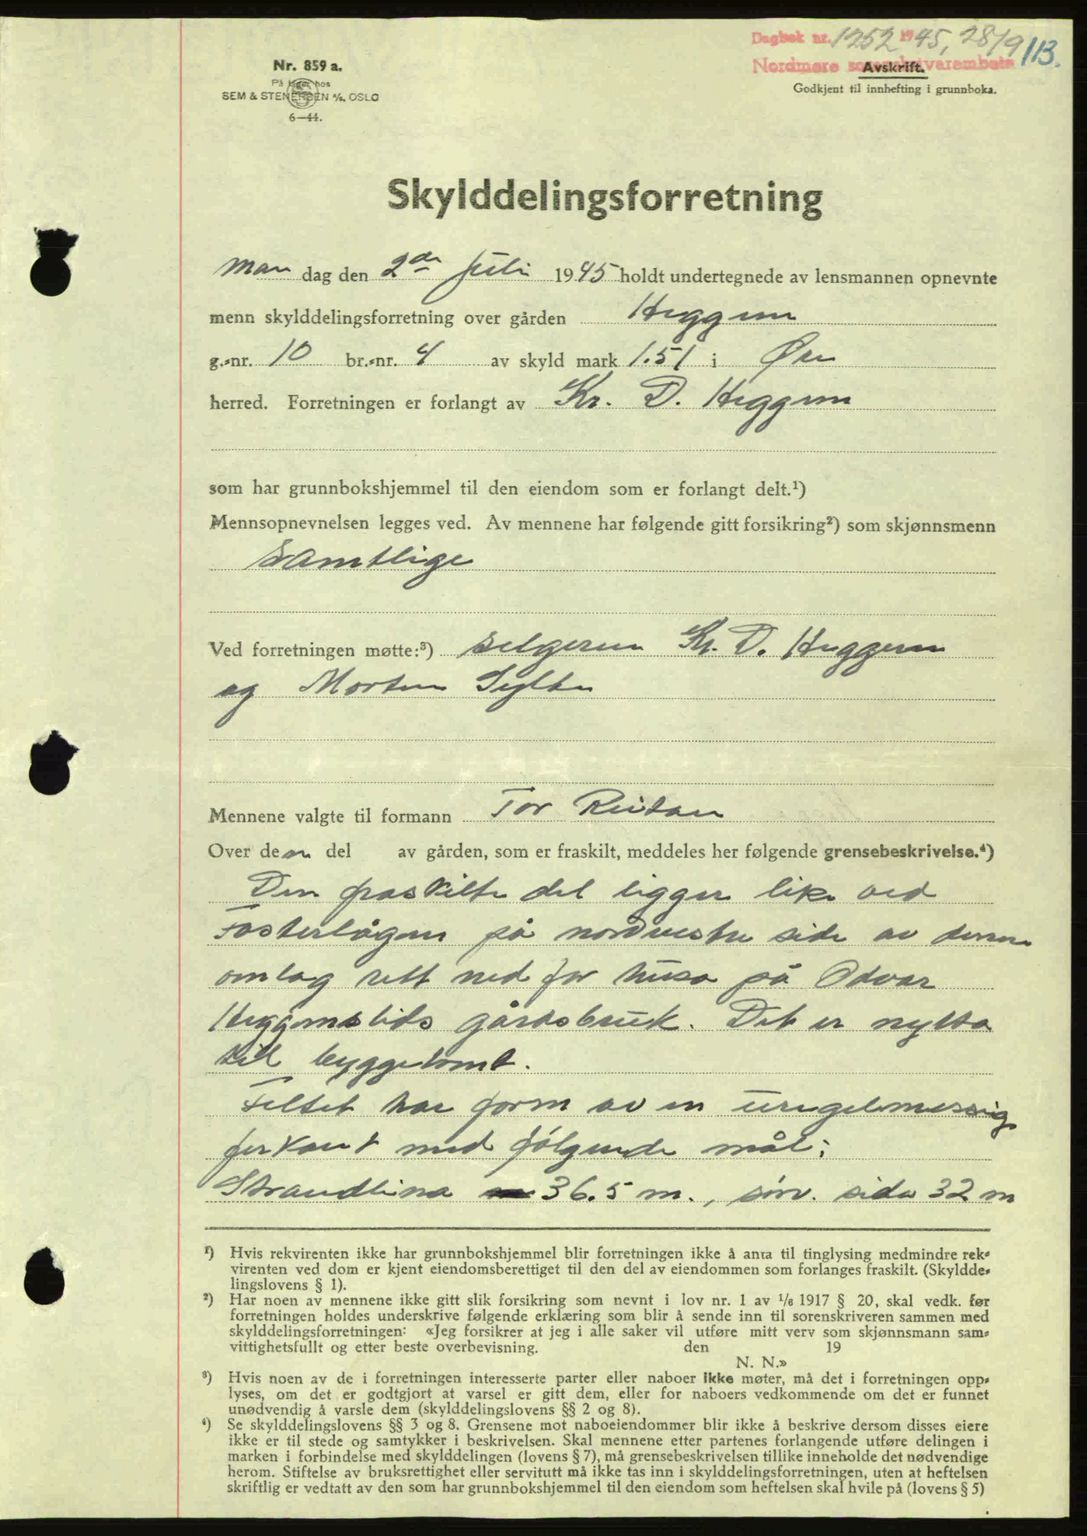 Dagbok nr. 1252 1945, 28/9 113.
Nordmøre sorenskriverembete
Nr. 859 a.
På lager hos
SEM & STENERSEN A/S, OSLO
6—44.
Avskrift.
Godkjent til innhefting i grunnboka.
Skylddelingsforretning
Man dag den 2de juli 1945 holdt undertegnede av lensmannen opnevnte
menn skylddelingsforretning over gården Heggem
g.-nr. 10 br.-nr. 4 av skyld mark 1.51 i Øre
herred. Forretningen er forlangt av Kr. D. Heggem
som har grunnbokshjemmel til den eiendom som er forlangt delt.¹)
Mennsopnevnelsen legges ved. Av mennene har følgende gitt forsikring²) som skjønnsmenn
Samtlige
Ved forretningen møtte:³) selgeren Kr. D. Heggem
og Morten Sylte
Mennene valgte til formann Tor Reitan
Over den del av gården, som er fraskilt, meddeles her følgende grensebeskrivelse.⁴)
Den fraskilte del ligger like ved
Fosterlågen på nordvestre side av denne
omlag rett ned for husa på Odvar
Heggemslids gårdsbruk. Det er nytta
til byggetomt.
Feltet har form av en uregelmessig
firkant med følgende mål:
Strandlina 36.5 m., sørv. side 32 m
¹) Hvis rekvirenten ikke har grunnbokshjemmel blir forretningen ikke å anta til tinglysing medmindre rek-
virenten ved dom er kjent eiendomsberettiget til den del av eiendommen som forlanges fraskilt. (Skyldde-
lingslovens § 1).
²) Har noen av mennene ikke gitt slik forsikring som nevnt i lov nr. 1 av 1/6 1917 § 20, skal vedk. før
forretningen holdes underskrive følgende erklæring som blir å sende inn til sorenskriveren sammen med
skylddelingsforretningen: «Jeg forsikrer at jeg i alle saker vil utføre mitt verv som skjønnsmann sam-
vittighetsfullt og etter beste overbevisning. den 19
N. N.»
³) Hvis noen av de i forretningen interesserte parter eller naboer ikke møter, må det i forretningen opp-
lyses, om det er godtgjort at varsel er gitt dem, eller for naboers vedkommende om det er funnet
unødvendig å varsle dem (skylddelingslovens §§ 2 og 8).
⁴) Se skylddelingslovens §§ 3 og 8. Grensene mot naboeiendommer blir ikke å beskrive dersom disses eiere
ikke er til stede og samtykker i beskrivelsen. Skal mennene etter partenes forlangende utføre delingen i
marken i forbindelse med skylddelingen (lovens § 7), må grensebeskrivelsen tillike inneholde det nødvendige
herom. Stiftelse av bruksrettighet eller servitutt må ikke tas inn i skylddelingsforretningen, uten at heftelsen
skriftlig er vedtatt av den som har grunnbokshjemmel til den eiendom som heftelsen skal hvile på (lovens § 5)